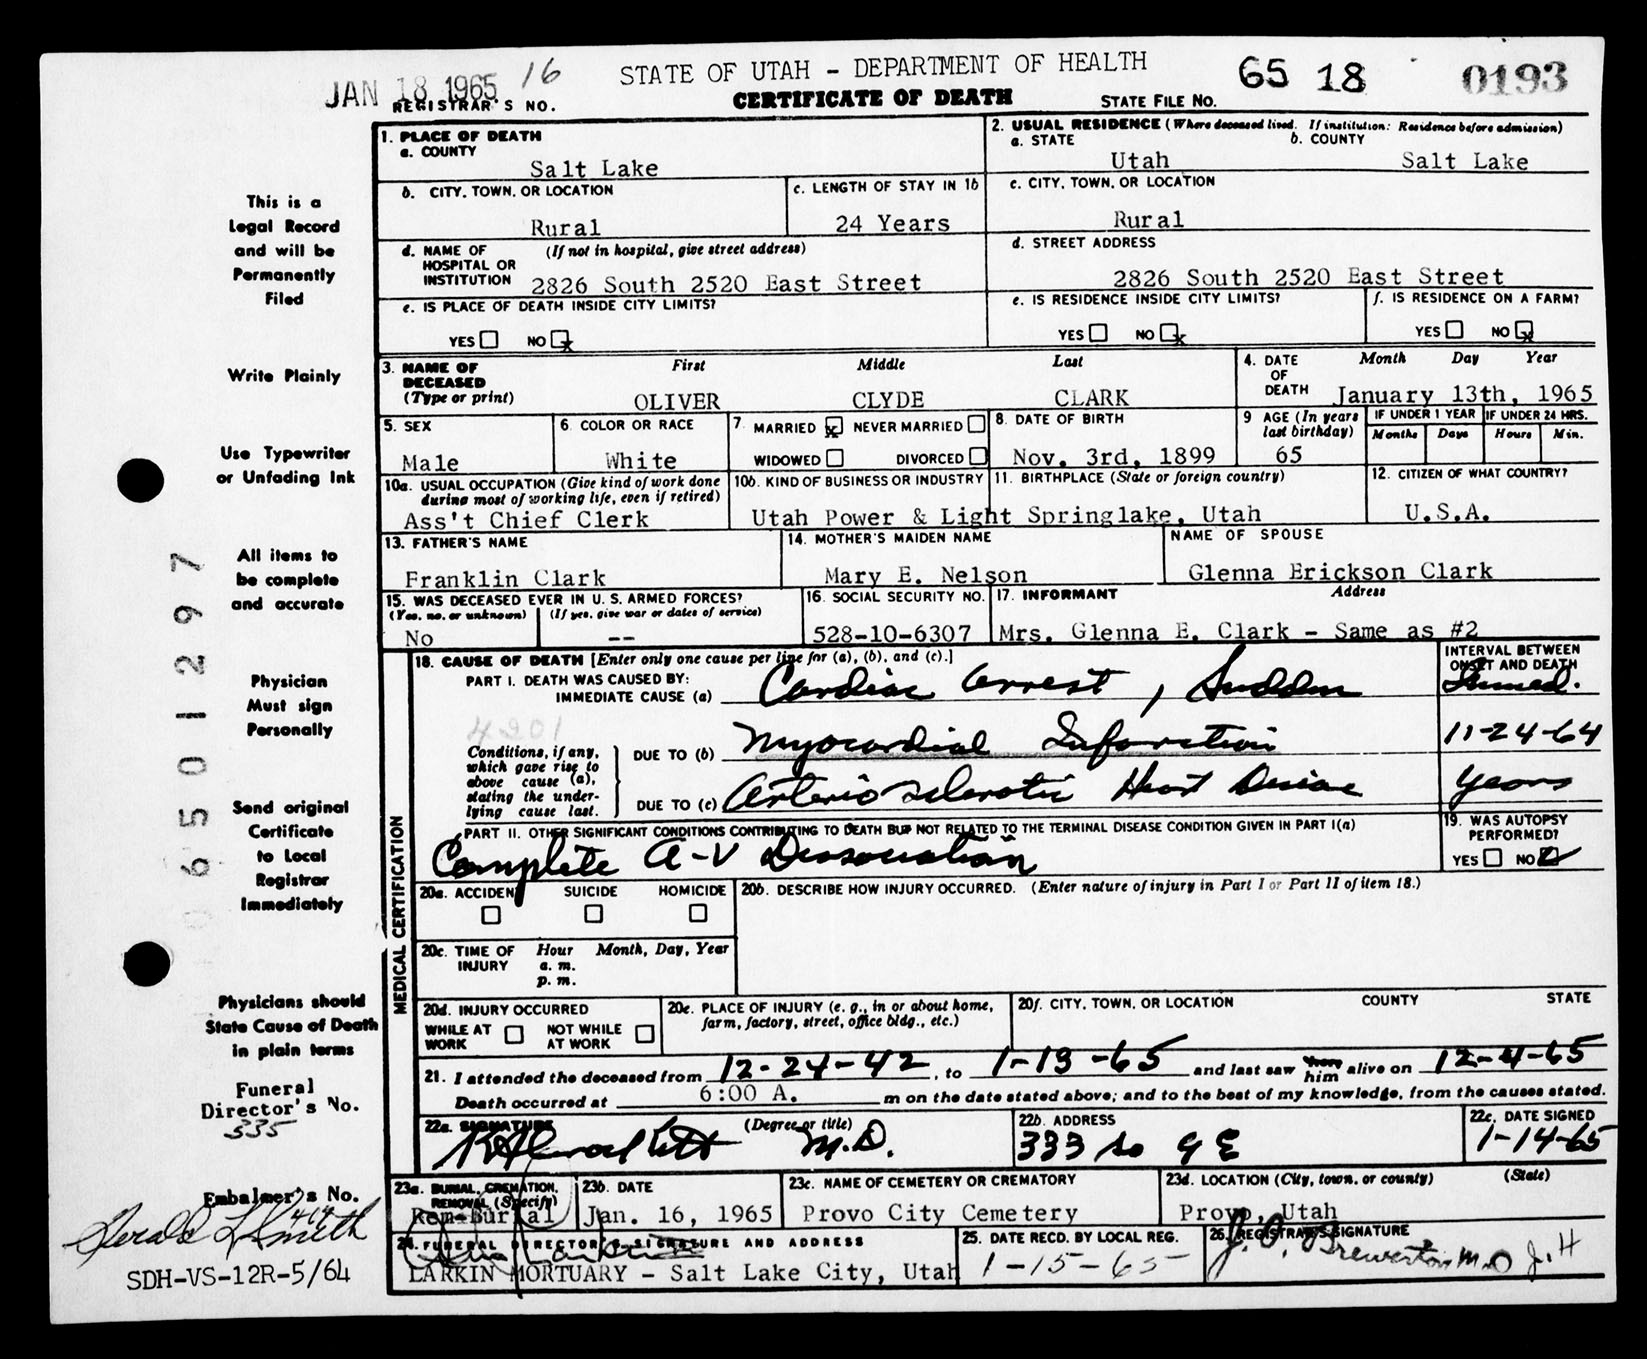 JAN 18 1965 16 STATE OF UTAH - DEPARTMENT OF HEALTH 65 18 0193
REGISTRAR'S NO. CERTIFICATE OF DEATH STATE FILE NO.
1. PLACE OF DEATH
a. COUNTY
Salt Lake
2. USUAL RESIDENCE (Where deceased lived. If institution: Residence before admission)
a. STATE b. COUNTY
Utah Salt Lake
b. CITY, TOWN, OR LOCATION c. LENGTH OF STAY IN 1b
Rural 24 Years
c. CITY, TOWN, OR LOCATION
Rural
d. NAME OF (If not in hospital, give street address)
HOSPITAL OR
INSTITUTION 2826 South 2520 East Street
d. STREET ADDRESS
2826 South 2520 East Street
e. IS PLACE OF DEATH INSIDE CITY LIMITS?
YES NO x
e. IS RESIDENCE INSIDE CITY LIMITS?
YES NO x
f. IS RESIDENCE ON A FARM?
YES NO x
3. NAME OF First Middle Last
DECEASED
(Type or print) OLIVER CLYDE CLARK
4. DATE Month Day Year
OF
DEATH January 13th, 1965
5. SEX
Male
6. COLOR OR RACE
White
7. MARRIED x NEVER MARRIED
WIDOWED DIVORCED
8. DATE OF BIRTH
Nov. 3rd, 1899
9 AGE (In years
last birthday)
65
IF UNDER 1 YEAR IF UNDER 24 HRS.
Months Days Hours Min.
10a. USUAL OCCUPATION (Give kind of work done
during most of working life, even if retired)
Ass't Chief Clerk
10b. KIND OF BUSINESS OR INDUSTRY
Utah Power & Light
11. BIRTHPLACE (State or foreign country)
Springlake, Utah
12. CITIZEN OF WHAT COUNTRY?
U.S.A.
13. FATHER'S NAME
Franklin Clark
14. MOTHER'S MAIDEN NAME
Mary E. Nelson
NAME OF SPOUSE
Glenna Erickson Clark
15. WAS DECEASED EVER IN U. S. ARMED FORCES?
(Yes, no, or unknown) (If yes, give war or dates of service)
No --
16. SOCIAL SECURITY NO.
528-10-6307
17. INFORMANT Address
Mrs. Glenna E. Clark - Same as #2
18. CAUSE OF DEATH [Enter only one cause per line for (a), (b), and (c).]
INTERVAL BETWEEN
ONSET AND DEATH
PART I. DEATH WAS CAUSED BY:
IMMEDIATE CAUSE (a) Cardiac arrest, Sudden Immed.
4201
Conditions, if any,
which gave rise to
above cause (a),
stating the under-
lying cause last.
DUE TO (b) Myocardial Infarction 11-24-64
DUE TO (c) Arterio sclerotic Heart Disease years
PART II. OTHER SIGNIFICANT CONDITIONS CONTRIBUTING TO DEATH BUT NOT RELATED TO THE TERMINAL DISEASE CONDITION GIVEN IN PART I(a)
Complete A-V Dissociation
19. WAS AUTOPSY
PERFORMED?
YES NO
MEDICAL CERTIFICATION
20a. ACCIDENT SUICIDE HOMICIDE
20b. DESCRIBE HOW INJURY OCCURRED. (Enter nature of injury in Part I or Part II of item 18.)
20c. TIME OF Hour Month, Day, Year
INJURY a. m.
p. m.
20d. INJURY OCCURRED
WHILE AT NOT WHILE
WORK AT WORK
20e. PLACE OF INJURY (e. g., in or about home,
farm, factory, street, office bldg., etc.)
20f. CITY, TOWN, OR LOCATION COUNTY STATE
21. I attended the deceased from 12-24-42, to 1-13-65 and last saw her him alive on 12-4-65
Death occurred at 6:00 A. m on the date stated above; and to the best of my knowledge, from the causes stated.
22a. SIGNATURE (Degree or title)
M.D.
22b. ADDRESS
333 So 9 E
22c. DATE SIGNED
1-14-65
23a. BURIAL, CREMATION,
REMOVAL (Specify)
Rem-Burial
23b. DATE
Jan. 16, 1965
23c. NAME OF CEMETERY OR CREMATORY
Provo City Cemetery
23d. LOCATION (City, town, or county) (State)
Provo, Utah
24. FUNERAL DIRECTOR'S SIGNATURE AND ADDRESS
LARKIN MORTUARY - Salt Lake City, Utah
25. DATE RECD. BY LOCAL REG.
1-15-65
26. REGISTRAR'S SIGNATURE
J. H
This is a
Legal Record
and will be
Permanently
Filed
Write Plainly
Use Typewriter
or Unfading Ink
All items to
be complete
and accurate
Physician
Must sign
Personally
Send original
Certificate
to Local
Registrar
Immediately
Physicians should
State Cause of Death
in plain terms
Funeral
Director's No.
335
Embalmer's No.
SDH-VS-12R-5/64
06501297